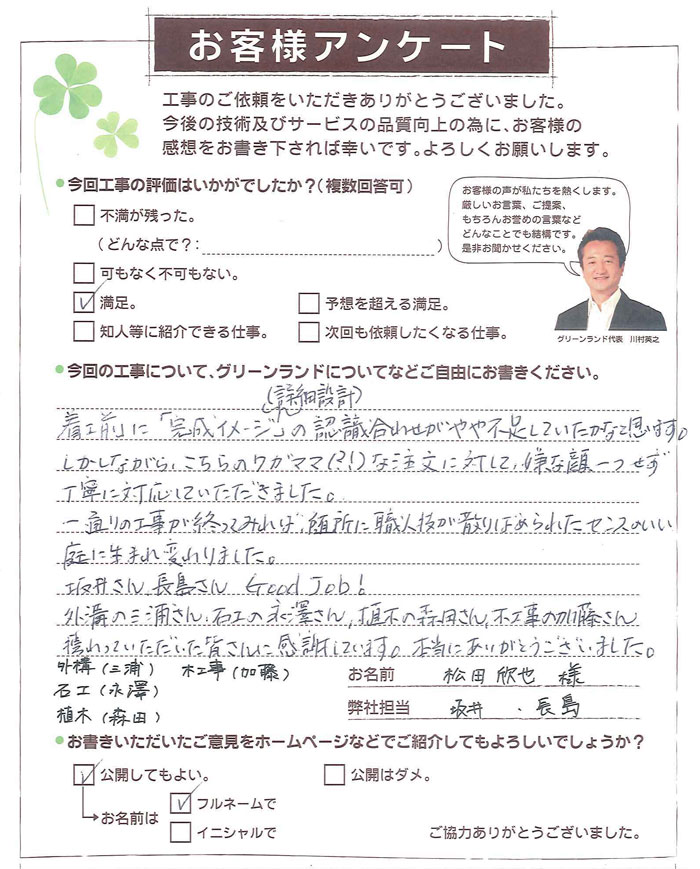 お客様アンケート
工事のご依頼をいただきありがとうございました。
今後の技術及びサービスの品質向上の為に、お客様の
感想をお書き下されば幸いです。よろしくお願いします。
●今回工事の評価はいかがでしたか?(複数回答可)
お客様の声が私たちを熱くします。
厳しいお言葉、ご提案、
もちろんお誉めの言葉など
どんなことでも結構です。
是非お聞かせください。
グリーンランド代表 川村英之
□不満が残った。
(どんな点で?: )
□可もなく不可もない。
☑満足。 □予想を超える満足。
□知人等に紹介できる仕事。 □次回も依頼したくなる仕事。
●今回の工事について、グリーンランドについてなどご自由にお書きください。
(詳細設計)
着工前に「完成イメージ」の認識合わせがやや不足していたかなと思います。
しかしながら、こちらのワガママ(?!)な注文に対して、嫌な顔一つせず
丁寧に対応していただきました。
一通りの工事が終ってみれば、随所に職人技が散りばめられたセンスのいい
庭に生まれ変わりました。
坂井さん、長島さん Good Job!
外溝の三浦さん、石工の永澤さん、植木の森田さん、木工事の加藤さん
携わっていただいた皆さんに感謝しています。本当にありがとうございました。
外構(三浦) 木工事(加藤)
石工(永澤)
植木(森田)
お名前 松田欣也 様
弊社担当 坂井 . 長島
●お書きいただいたご意見をホームページなどでご紹介してもよろしいでしょうか?
☑公開してもよい。 □公開はダメ。
お名前は ☑フルネームで
□イニシャルで
ご協力ありがとうございました。